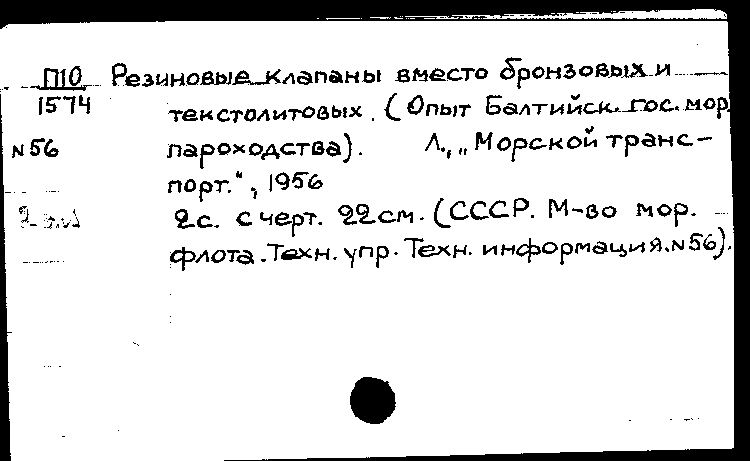 П10 Резиновые клапаны вместо бронзовых и
1574 текстолитовых. (Опыт Балтийск. гос. мор.
N56 пароходства). Л., „Морской транс-
порт.", 1956
2с. с черт. 22см. (СССР. М-во мор.
флота. Техн. упр. Техн. информация. N56).